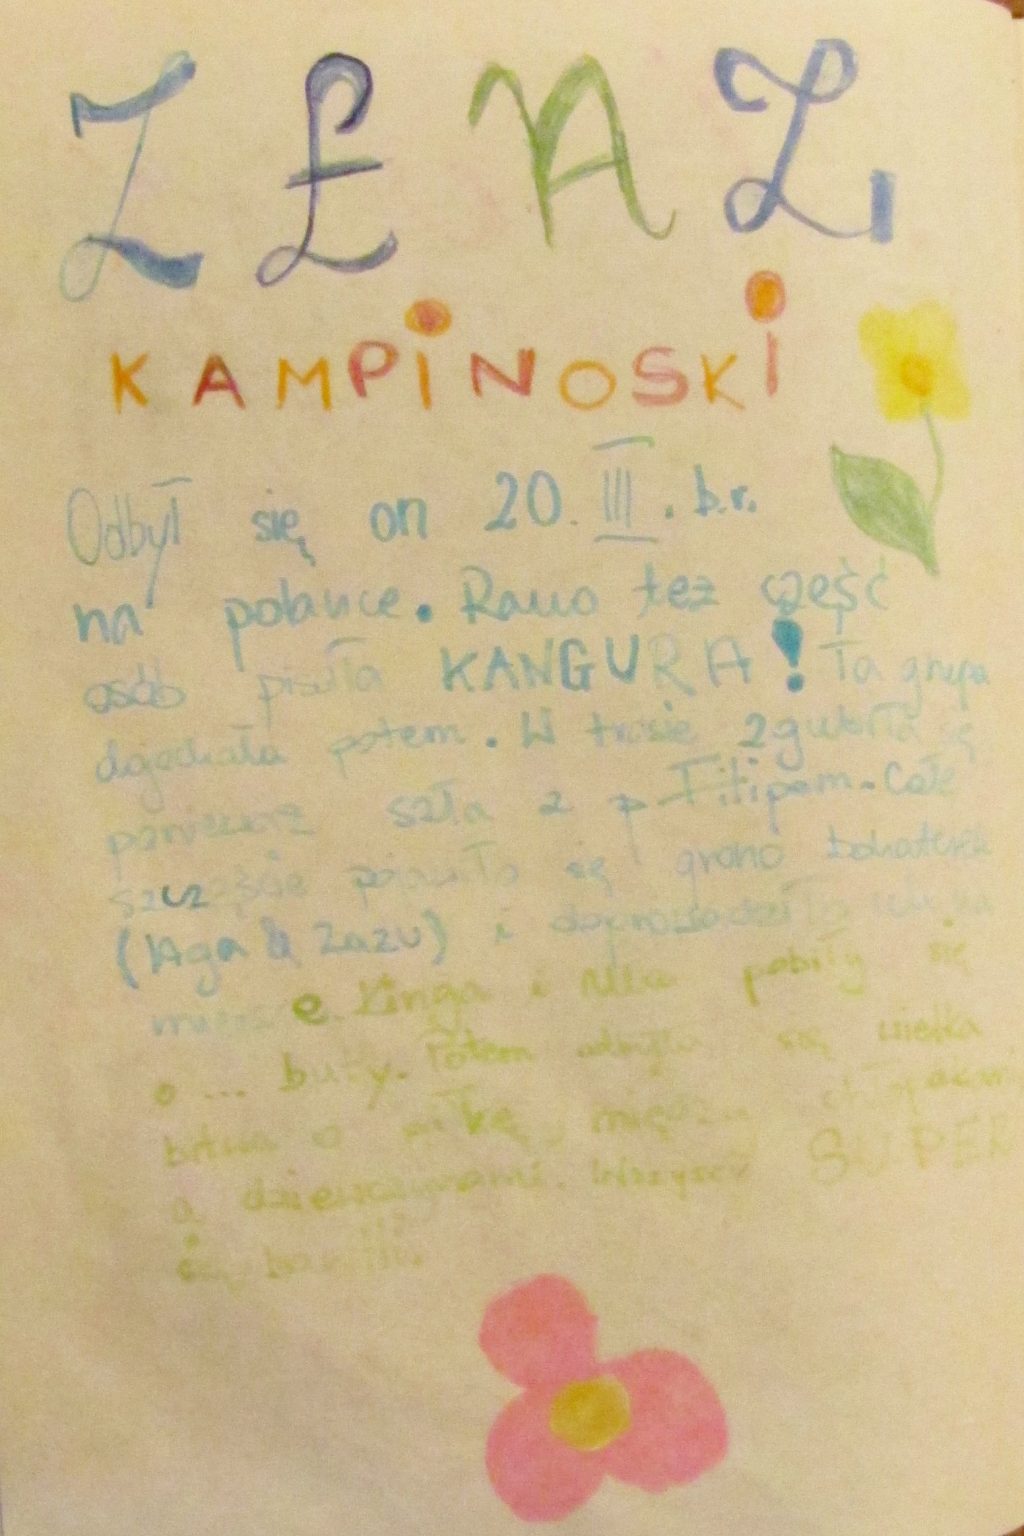 ZŁAZ
KAMPINOSKI
Odbył się on 20. III. b.r.
na polance. Rano też część
osób pisała KANGURA! Ta grupa
dojechała potem. W trasie zgubiła się
ponieważ szła z p. Filipem. Całe
szczęście pojawiło się grono bohaterek
(Aga & Zazu) i doprowadziło
Kinga i pobiły się
o ... buty. Potem odbyła się wielka
bitwa o piłkę między chłopakami
a dziewczynami. Wszyscy SUPER
się bawili.